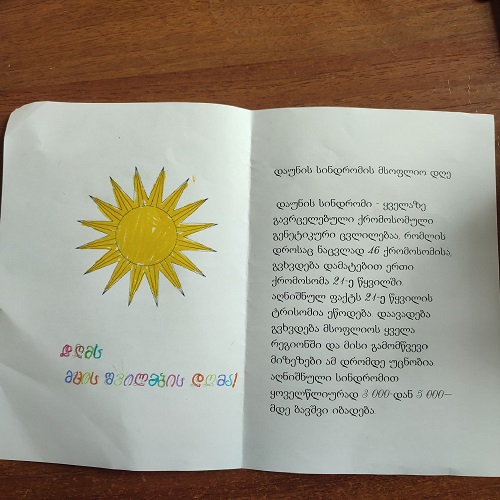 დღეს
მზის შვილების დღეა!
დაუნის სინდრომის მსოფლიო დღე
დაუნის სინდრომი - ყველაზე
გავრცელებული ქრომოსომული
გენეტიკური ცვლილებაა, რომლის
დროსაც ნაცვლად 46 ქრომოსომისა,
გვხვდება დამატებით ერთი
ქრომოსომა 21-ე წყვილში.
აღნიშნულ ფაქტს 21-ე წყვილის
ტრისომია ეწოდება. დაავადება
გვხვდება მსოფლიოს ყველა
რეგიონში და მისი გამომწვევი
მიზეზები ამ დრომდე უცნობია.
აღნიშნული სინდრომით
ყოველწლიურად 3 000-დან 5 000-
მდე ბავშვი იბადება.